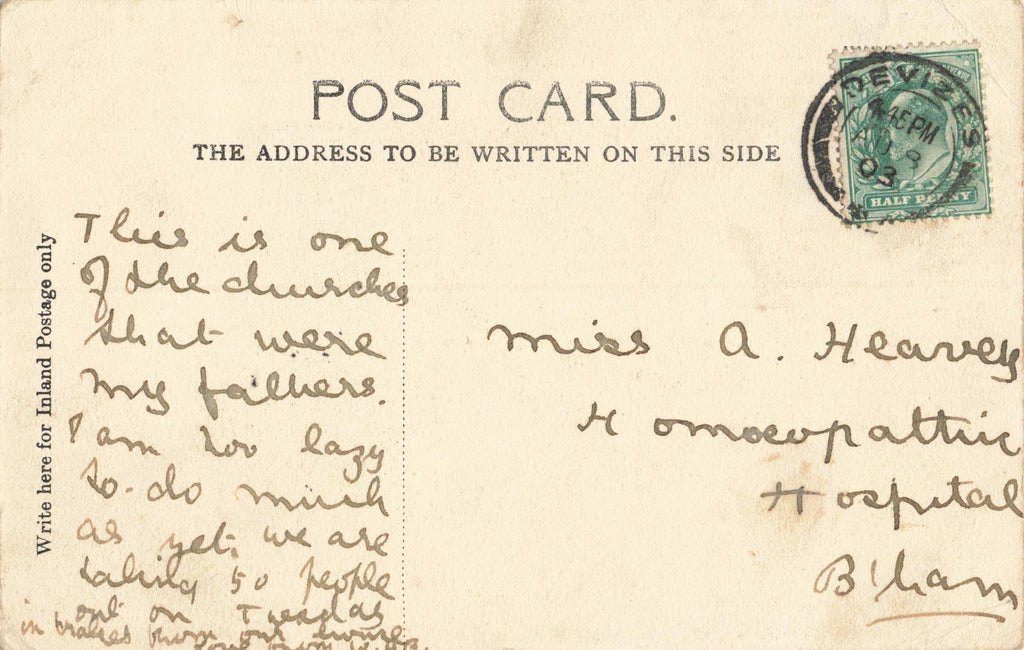 POST CARD.
THE ADDRESS TO BE WRITTEN ON THIS SIDE
DEVIZES
4.45PM
AU 8
03
HALF PENNY
Write here for Inland Postage only
This is one
of the churches
that were
my fathers.
I am too lazy
to do much
as yet, we are
taking 50 people
out on Tuesday
in brakes from our
Miss A. Heavey
Homoeopathic
Hospital
B'ham